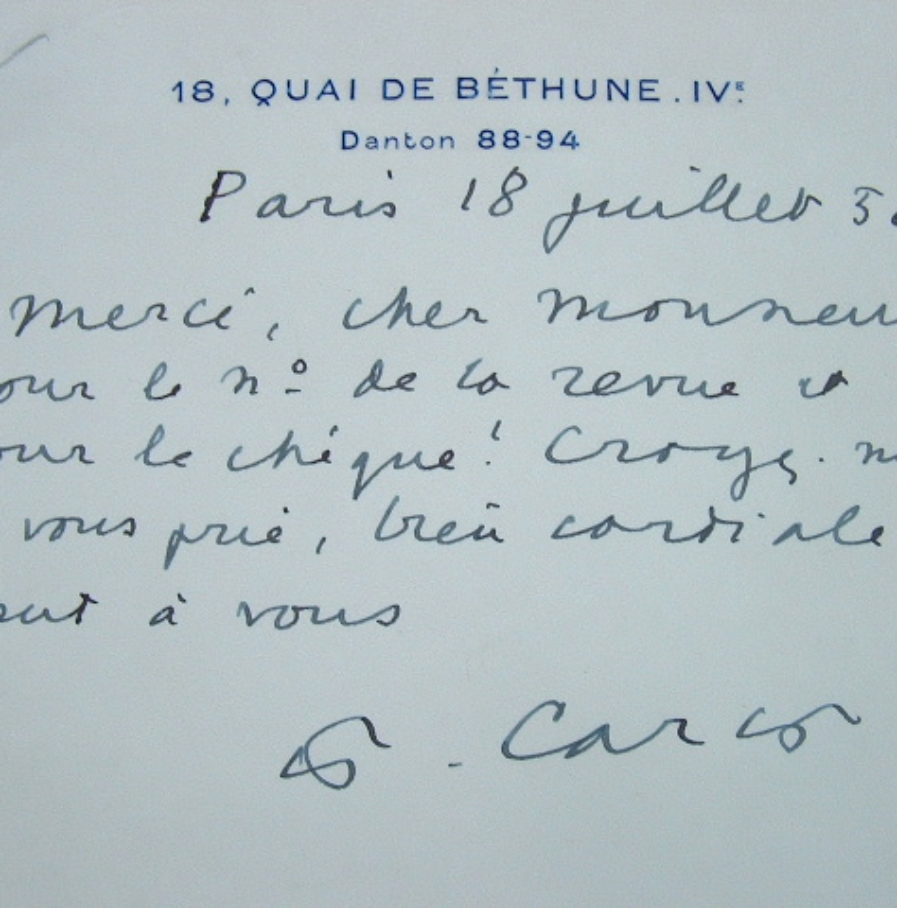 18, QUAI DE BÉTHUNE. IVᴱ.
Danton 88-94
Paris 18 juillet 5
merci, cher monsieu
our le nº de la revue et
our le chèque! Croyez-m
vous prie, bien cordiale
out à vous
F. Carco